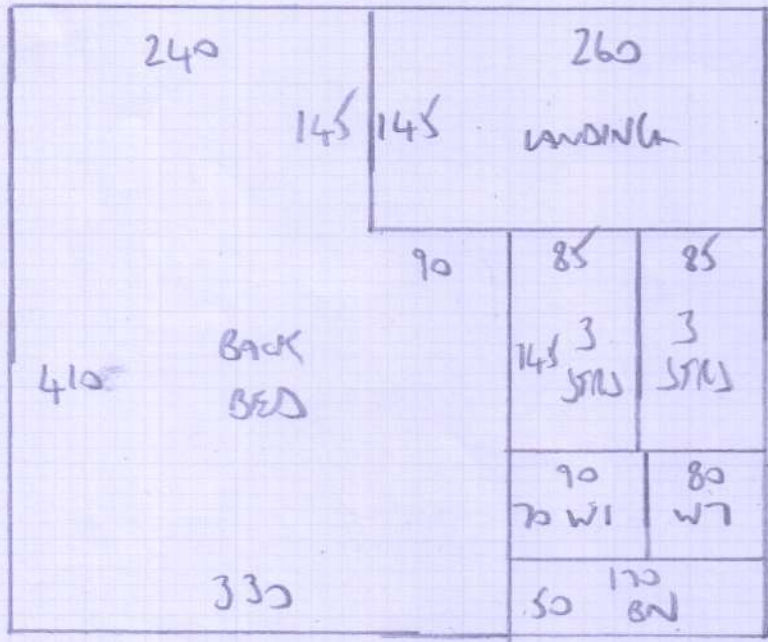 240
260
145
145
LANDING
90
85
85
145
3
STRS
3
STRS
BACK
BED
410
90
70 W1
80
W7
330
170
50
BN